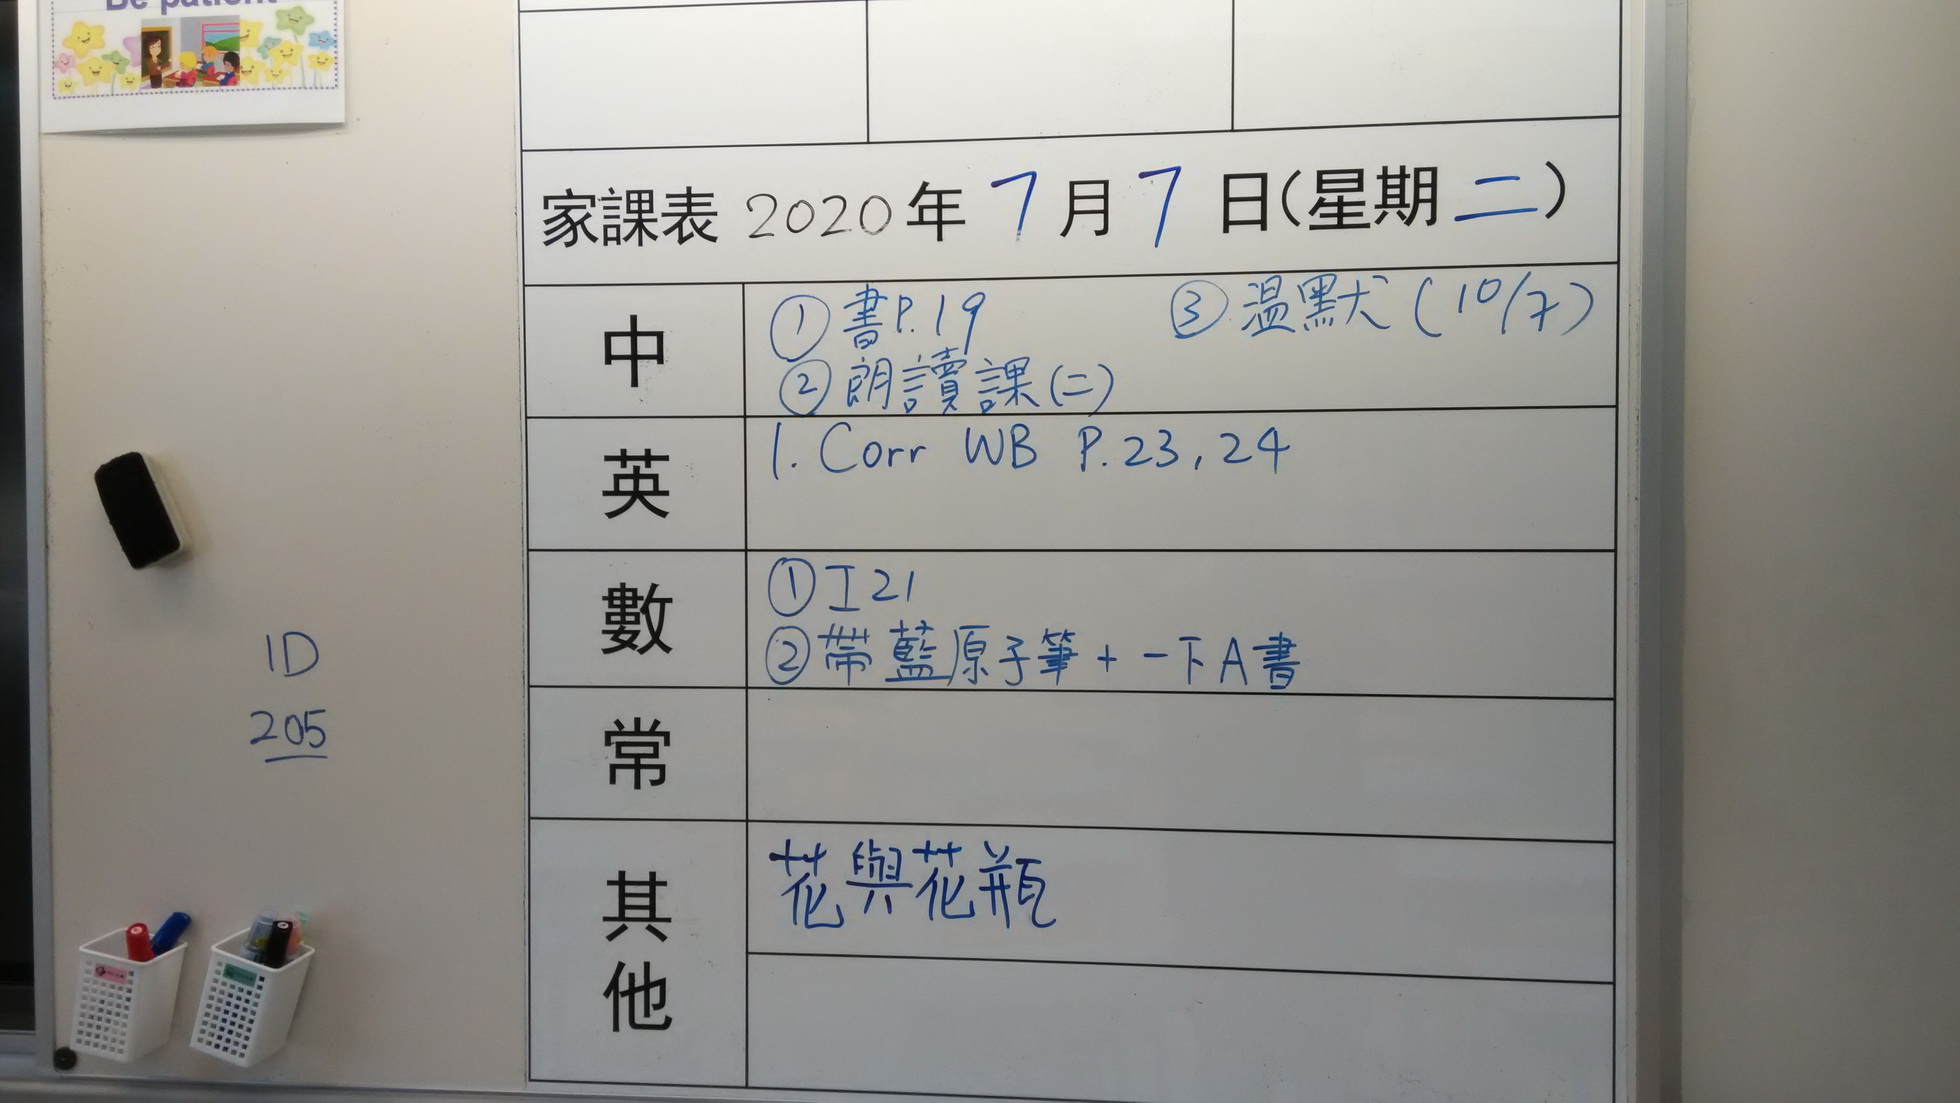 Be patient
家課表 2020年 7月7日(星期二)
中
① 書P.19 ③ 温默(10/7)
② 朗讀課(二)
英
1. Corr WB P.23, 24
數
① 工21
② 帶藍原子筆 + 一下A書
常
其他
花與花瓶
1D
205